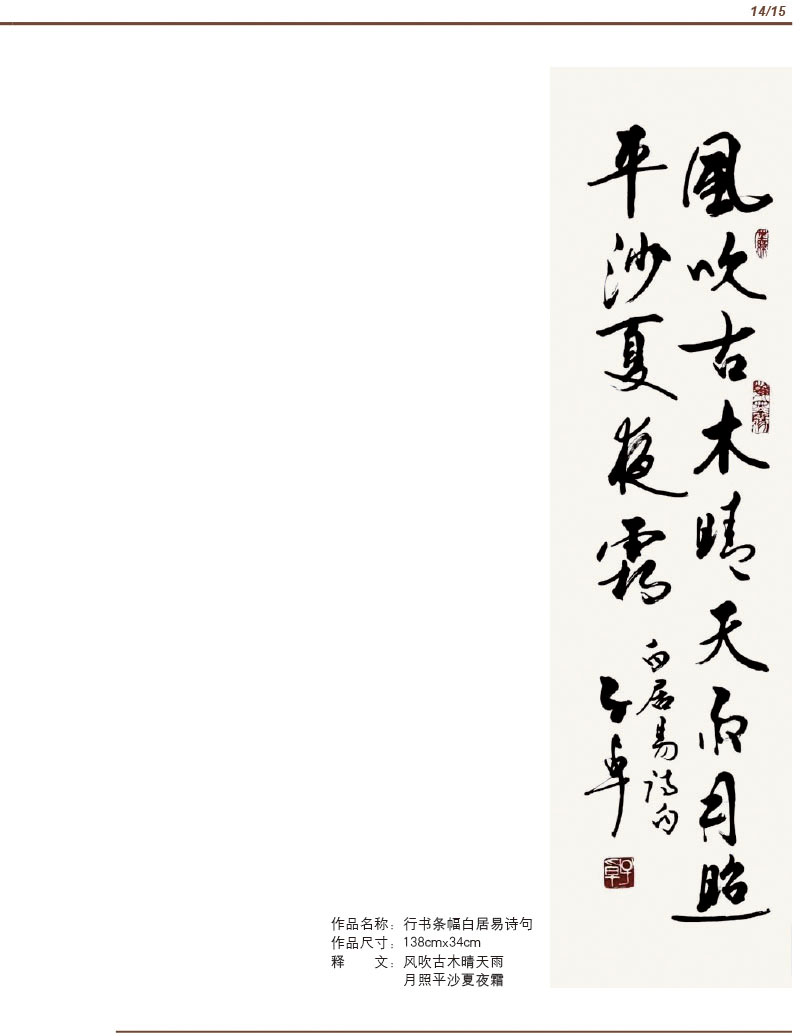 14/15
風吹古木晴天雨月照
平沙夏夜霜
白居易诗句
子卓
子卓
作品名称：行书条幅白居易诗句
作品尺寸：138cmx34cm
释　　文：风吹古木晴天雨
月照平沙夏夜霜